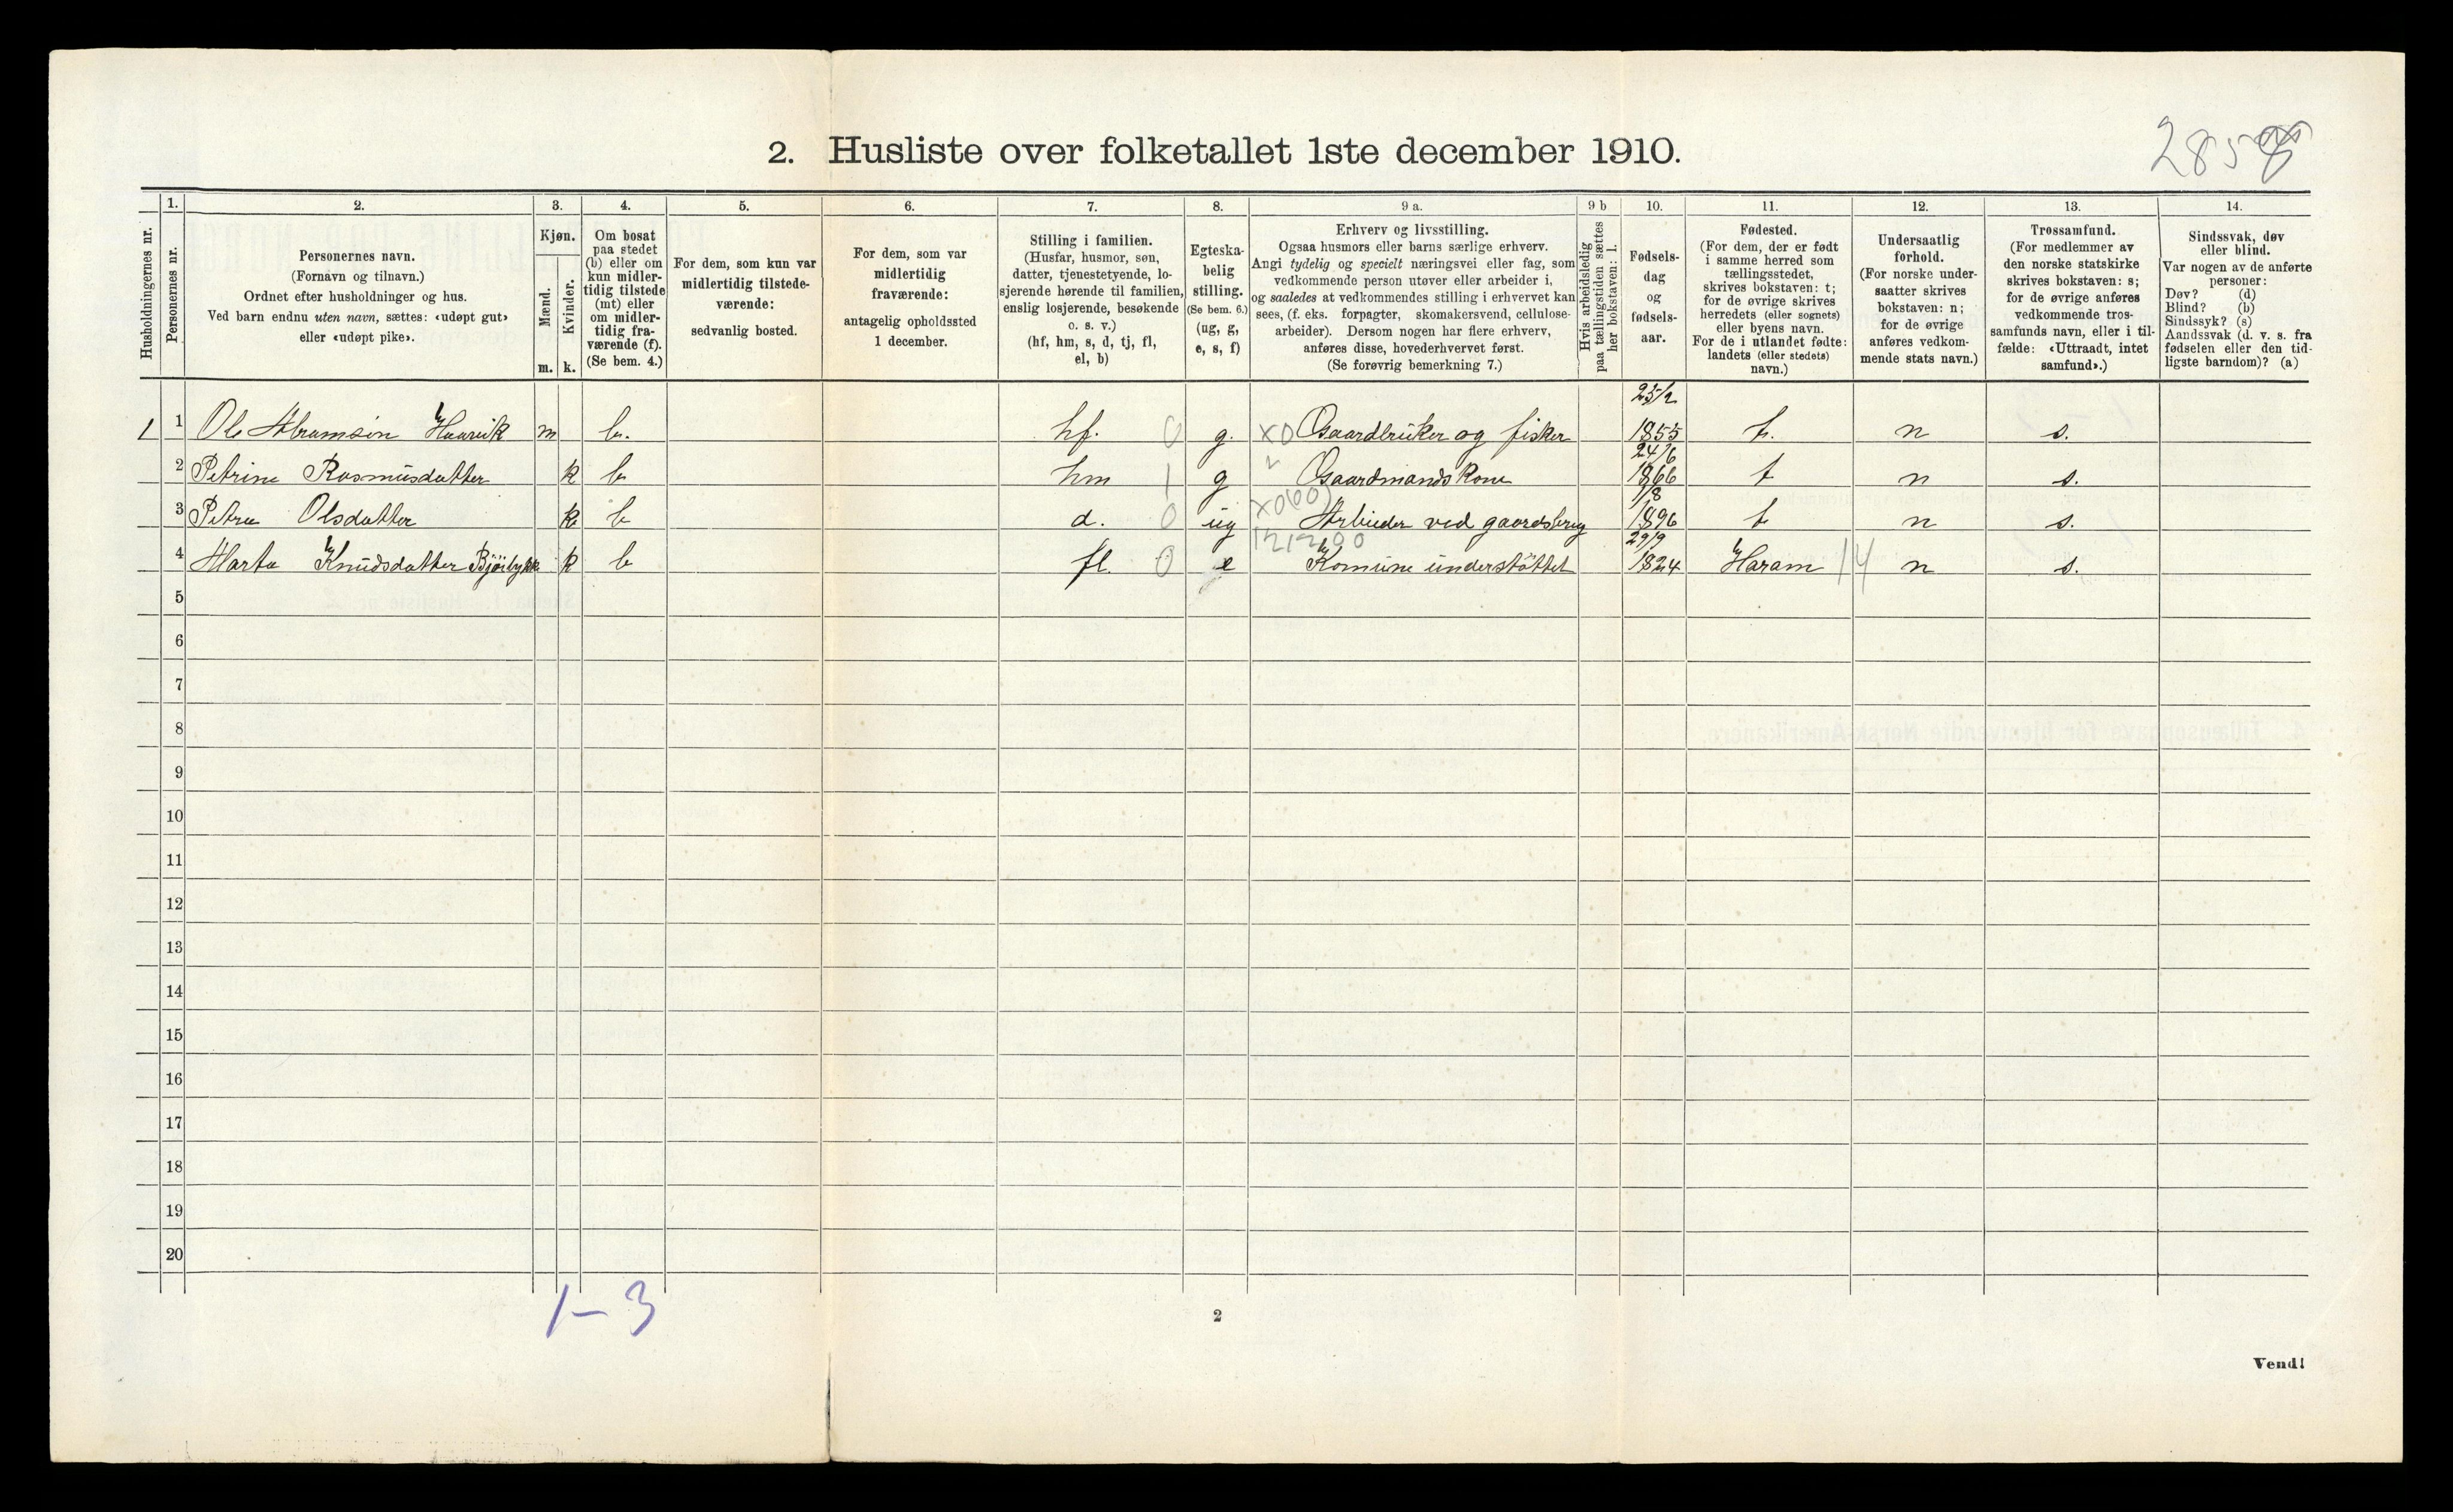 2. Husliste over folketallet 1ste december 1910.
1. 2. 3. 4. 5. 6. 7. 8. 9 a. 9 b 10. 11. 12. 13. 14.
Husholdningernes nr.
Personernes nr.
Personernes navn.
(Fornavn og tilnavn.)
Ordnet efter husholdninger og hus.
Ved barn endnu uten navn, sættes: «udøpt gut»
eller «udøpt pike».
Kjøn.
Mænd.
Kvinder.
m. k.
Om bosat
paa stedet
(b) eller om
kun midler-
tidig tilstede
(mt) eller
om midler-
tidig fra-
værende (f).
(Se bem. 4.)
For dem, som kun var
midlertidig tilstede-
værende:
sedvanlig bosted.
For dem, som var
midlertidig
fraværende:
antagelig opholdssted
1 december.
Stilling i familien.
(Husfar, husmor, søn,
datter, tjenestetyende, lo-
sjerende hørende til familien,
enslig losjerende, besøkende
o. s. v.)
(hf, hm, s, d, tj, fl,
el, b)
Egteska-
belig
stilling.
(Se bem. 6.)
(ug, g,
e, s, f)
Erhverv og livsstilling.
Ogsaa husmors eller barns særlige erhverv.
Angi tydelig og specielt næringsvei eller fag, som
vedkommende person utøver eller arbeider i,
og saaledes at vedkommendes stilling i erhvervet kan
sees, (f. eks. forpagter, skomakersvend, cellulose-
arbeider). Dersom nogen har flere erhverv,
anføres disse, hovederhvervet først.
(Se forøvrig bemerkning 7.)
Hvis arbeidsledig
paa tællingstiden sættes
her bokstaven: l.
Fødsels-
dag
og
fødsels-
aar.
Fødested.
(For dem, der er født
i samme herred som
tællingsstedet,
skrives bokstaven: t;
for de øvrige skrives
herredets (eller sognets)
eller byens navn.
For de i utlandet fødte:
landets (eller stedets)
navn.)
Undersaatlig
forhold.
(For norske under-
saatter skrives
bokstaven: n;
for de øvrige
anføres vedkom-
mende stats navn.)
Trossamfund.
(For medlemmer av
den norske statskirke
skrives bokstaven: s;
for de øvrige anføres
vedkommende tros-
samfunds navn, eller i til-
fælde: «Uttraadt, intet
samfund».)
Sindssvak, døv
eller blind.
Var nogen av de anførte
personer:
Døv? (d)
Blind? (b)
Sindssyk? (s)
Aandssvak (d. v. s. fra
fødselen eller den tid-
ligste barndom)? (a)
25/2
1 1 Ole Abramsön Haavik m b. hf. 0 g. X0 Gaardbruker og fisker 1855 t. n s.
24/6
2 Petrine Rasmusdatter k b hm 1 g Gaardmands Kone 1866 t n s.
1/8
3 Petra Olsdatter k b d. 0 ug X0(00) Arbeider ved gaardsbrug 1896 t n s.
29/9
4 Marta Knudsdatter k b fl. 0 e Komune understöttet 1824 Haram 14 n s.
5
6
7
8
9
10
11
12
13
14
15
16
17
18
19
20
1-3
2
Vend!